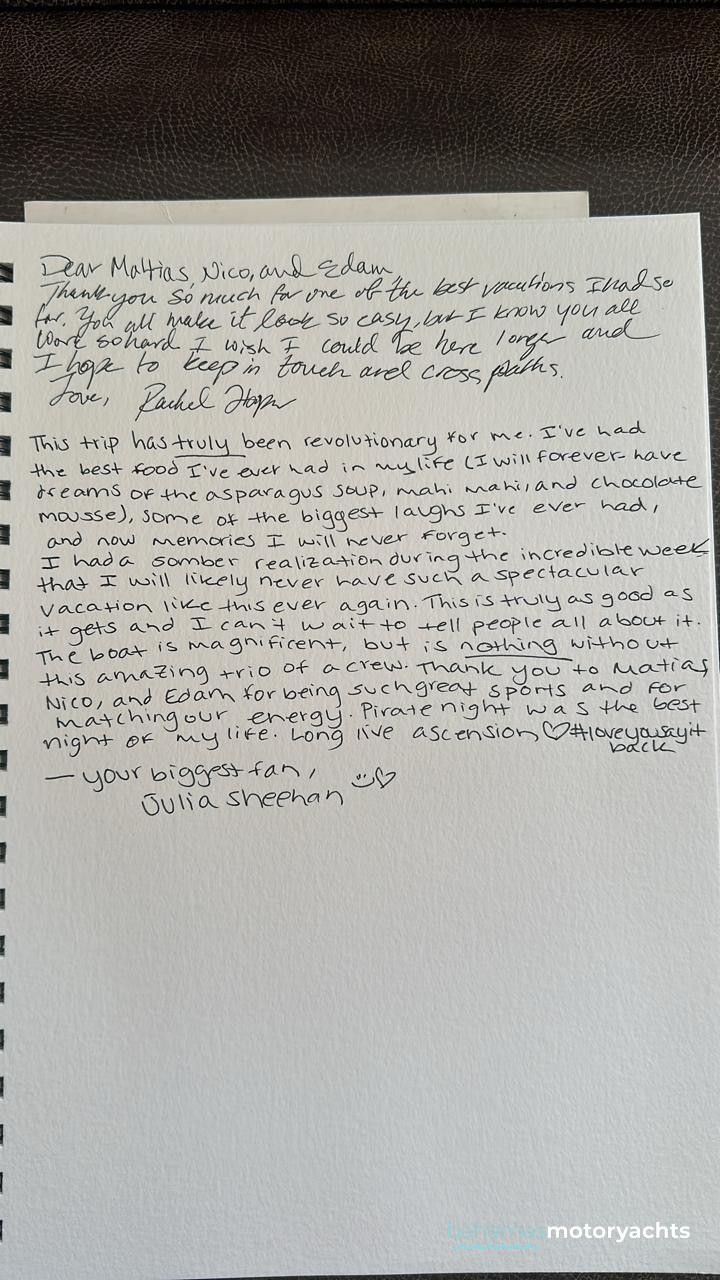 Dear Mattias, Nico, and Edam,
Thank you so much for one of the best vacations I had so
far. You all make it look so easy, but I know you all
work so hard I wish I could be here longer and
I hope to keep in touch and cross paths.
Love, Rachel
This trip has truly been revolutionary for me. I've had
the best food I've ever had in my life (I will forever have
dreams of the asparagus soup, mahi mahi, and chocolate
mousse), some of the biggest laughs I've ever had,
and now memories I will never forget.
I had a somber realization during the incredible week
that I will likely never have such a spectacular
vacation like this ever again. This is truly as good as
it gets and I can't wait to tell people all about it.
The boat is magnificent, but is nothing without
this amazing trio of a crew. Thank you to Matias,
Nico, and Edam for being such great sports and for
matching our energy. Pirate night was the best
night of my life. Long live ascension ♡ #loveyousayit
back
— your biggest fan,
Julia Sheehan
bahamasmotoryachts